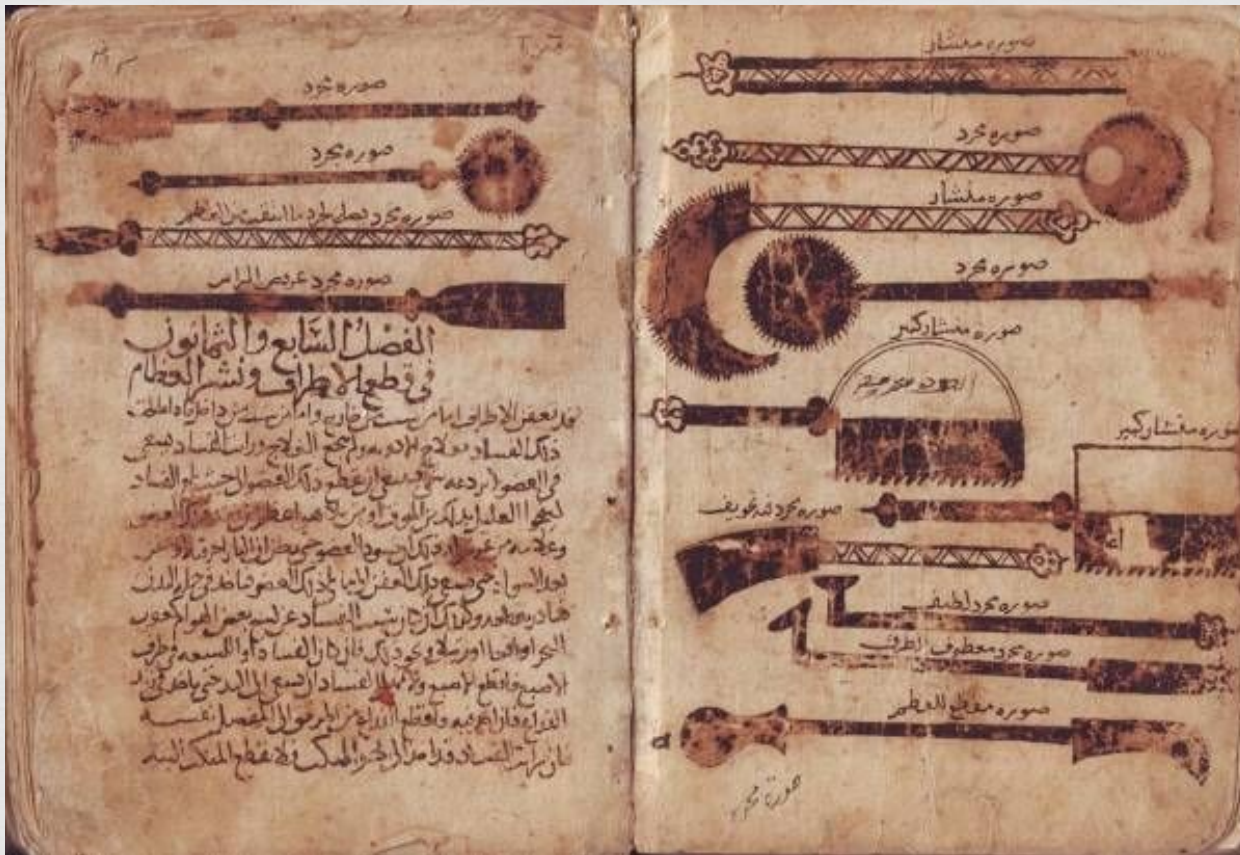 صوره منشار
صوره مجرد
صوره منشار
صوره مجرد
صوره منشار كبير
صوره منشار كبير
صوره مجرد فيه تجويف
صوره مجرد لطيف
صوره مجرد معطوف الطرف
صوره مقطع للعظم
صوره مجرد
صوره مجرد
صوره مجرد يصلح لجرد ما انثقب من العظم
صوره مجرد عريض الراس
الفصل السابع والثمانون
في قطع الاطراف ونشر العظام
قد تعفن الاطراف اما من سبب من خارج واما من سبب من داخل فاذا عالجت
ذلك الفساد بعلاج الادويه ولم ينجع العلاج ورايت الفساد يسعى
في العضو لا يرده شي فينبغي ان تقطع ذلك العضو الى حيث بلغ الفساد
لينجو العليل بذلك من الموت او من بلا هو اعظم من فقد العضو
وعلامه من عرض له ذلك ان يسود العضو حتى يظن ان النار احرقته او
بعد السواد حتى يسعى ذلك العفن الى ما يلي ذلك العضو وياخذ في جمله البدن
فبادر بقطعه وكذلك ان كان سبب الفساد عن لسعه بعض الهوام كعقرب
البحر او افعى او رتيلا ونحو ذلك فان كان الفساد او اللسعه في طرف
الاصبع فاقطع الاصبع ولا تمهل الفساد ان يسعى الى اليد حتى ياخذ في زند
الذراع فان اخذ فيه فاقطع الذراع من المرفق الى المفصل نفسه
فان جاوز الفساد ورايته نحو المنكب فلا تقطع المنكب البته